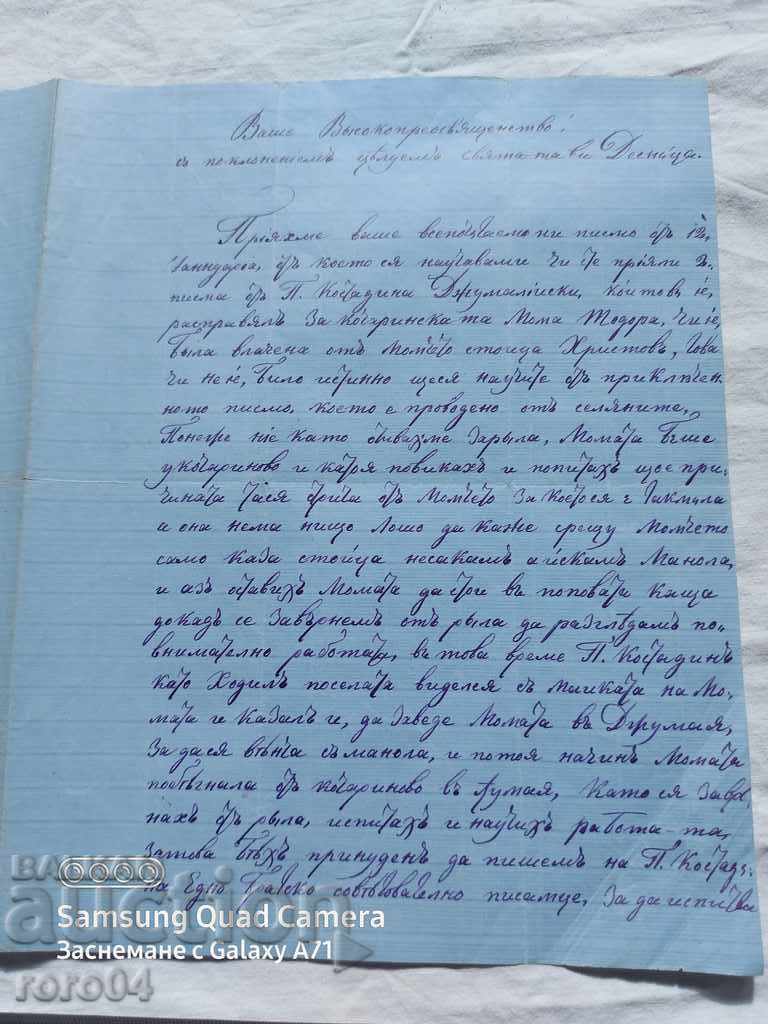 Ваше Высокопреосвященство!
съ поклонениемъ цѣлуемъ святата ви Десница.
Прияхме ваше всепочтаемо ни писмо отъ 12,
Ианндарса, отъ което ся научавами чи сте прияли 2
писма отъ П. Костадина Джумалиски, които в, ѥ,
расправялъ За кочаринска та Мома Тодора, чи ѥ,
была влачена отъ Момчето стоица Христовъ, това
чи не ѥ, било истинно щеся научите отъ приключен
ното писмо, което е проводено отъ селяните,
Понегре ние като отивахме Зарыла, Момата бѣше
у Кочариново и катоя повикахъ и попитахъ щее при-
чината тася отрича отъ Момчето За коетося е такмила
а она нема нищо лошо да каже срещу момчето
само каза стоица несакамъ а искамъ Манола,
и азъ оставихъ Момата да стои въ поповата каща
докадъ се Завърнемъ отъ рыла да разглѣдамъ по-
внимателно работата, въ това време П. Костадинъ
като Ходилъ поселата виделся съ маиката на Мо-
мата и казалъ и, да Заведе Момата въ Джумая,
За дася вѣнча съ манола, и потоя начин Момата
побѣгнала отъ кочариново въ Ѓумая, Като ся Завър
нахъ отъ рыла, испитахъ и научихъ работа-та,
Затова бѣхъ принуденъ да пишемъ на П. Костади-
на Едно братско совѣтователно писмце, За да испитва
Samsung Quad Camera
Заснемане с Galaxy A71
auction
roro04